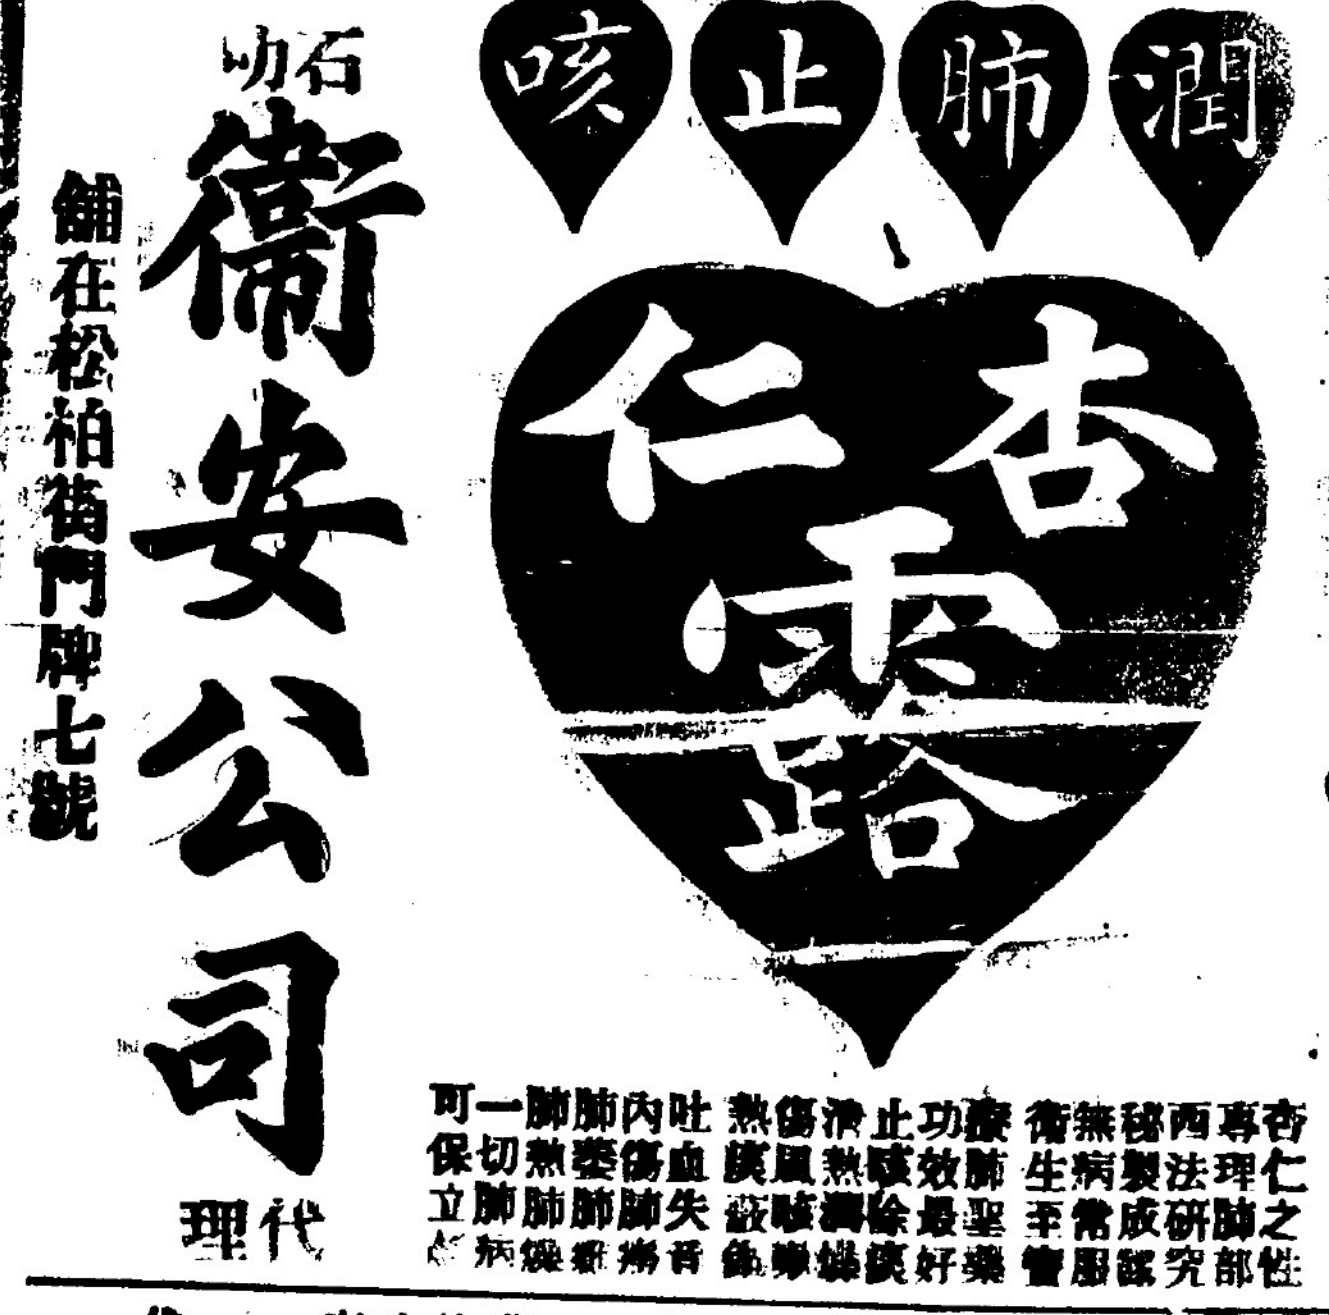 潤肺止咳
杏仁露
杏仁之性
專理肺部
西法研究
秘製成
無病常服
衛生至寶
療肺聖藥
功效最好
止咳除痰
清熱潤燥
傷風咳嗽
熱痰
吐血失音
內傷肺癆
肺萎肺
肺熱肺燥
一切肺病
可保立
石叻
衞安公司
代理
舖在松柏街門牌七號